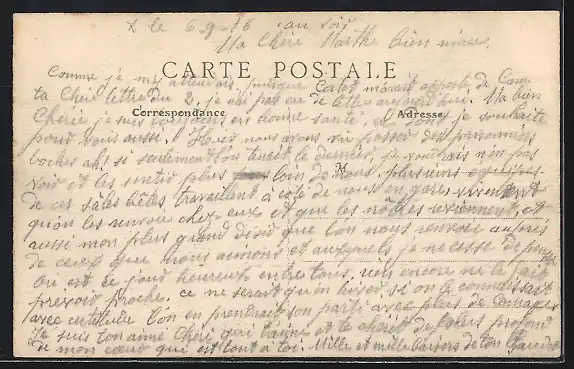 X le 6-9-16 au soir
Ma Chère Marthe bien aimée.
CARTE POSTALE
Comme je m'y attendais, puisque Carlet m'avait apporté de Cam
ta Chère lettre du 2, je n'ai pas eu de Lettre aujourd'hui. Ma bien
Correspondance
Adresse
Chérie je suis toujours en bonne santé, et j'ose je souhaite
pour vous aussi. Hier nous avons vu passer des prisonniers
boches ah! si seulement l'on tenait le dernier, je voudrais n'en pas
voir et les sentir plus loin de Nous, plusieurs équipes
de ces sales bêtes travaillent à côté de nous en gare, vivement
qu'on les renvoie chez-eux et que les nôtres reviennent, et
aussi mon plus grand désir que l'on nous renvoie auprès
de ceux que nous aimons et auxquels je ne cesse de penser
Où est ce jour heureux entre tous, rien encore ne le fait
prévoir proche. ce ne serait qu'en hiver si on le connaissait
avec certitude l'on en prendrait son parti avec plus de Courage
Je suis ton aimé Chéri qui t'aime et te chérit de plus profond
de mon cœur qui est tout à toi. Mille et mille baisers de ton